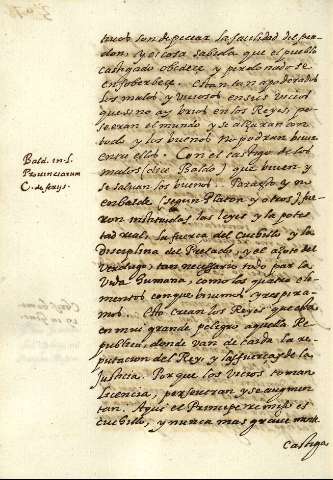 toros son de pecar la facilidad del per-
don. Y es cosa sabida que el pueblo
castigado obedece y perdonado se
ensoberbece. Estan tan apoderados
los malos y viciosos en sus vicios
que si no ay brios en los Reyes, pe-
se eran el mundo y se alçaran con
todo y los buenos no podran biuir
entre ellos. Con el castigo de los
malos (dize Baldo) que biuen y
se saluan los buenos. Para esto y no
en balde (segun Platon y otros) fue-
ron instituidas las leyes y la potes-
tad real, la fuerça del Cuchillo y la
disciplina del Prelado, y el açote del
verdugo, tan necessario todo par la
Vida humana, como los quatro ele-
mentos con que biuimos y respira-
mos. Cro crean los Reyes que esta
en mui grande peligro aquella Re-
publica, donde van de caida la re-
putacion del Rey, y las fuerças de la
Justicia. Porque los vicios toman
licencia, perseueran y se augmen-
tan. Aqui el Principe remisso es
cuchillo, y nunca mas graue mente
castiga
Bald. in L.
Prouinciarum
C. de ferijs.